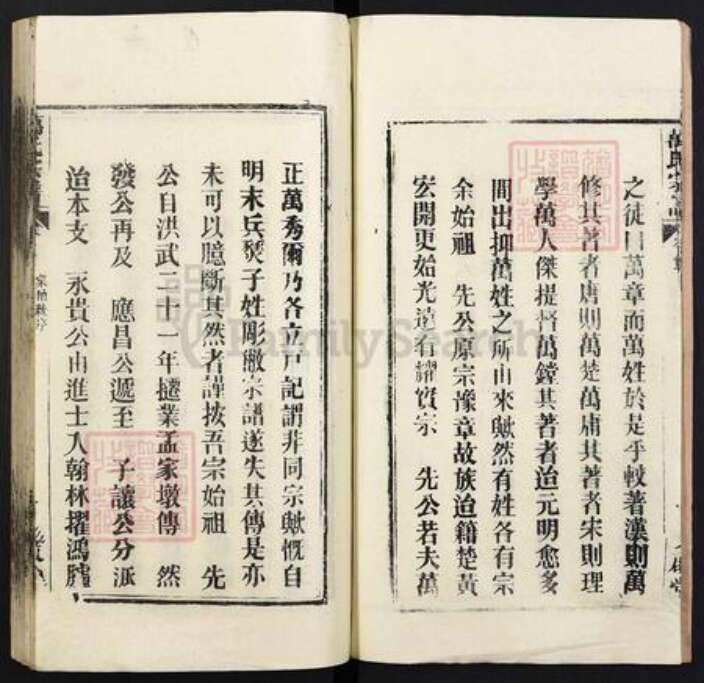 之徒曰萬章而萬姓於是乎較著漢則萬
修其著者唐則萬楚萬庸其著者宋則理
學萬人傑提督萬鏜其著者迨元明愈多
間出抑萬姓之所由來歟然有姓各有宗
余始祖 先公原宗豫章故族迨籍楚黃
宏開更始光遠有耀實宗 先公若夫萬
正萬秀爾乃各立戶記謂非同宗歟慨自
明末兵燹子姓彫敝宗譜遂失其傳是亦
未可以臆斷其然者謹按吾宗始祖 先
公自洪武二十一年 業孟家墩傳 然
發公再及 應昌公遞至 子讓公分派
治本支 永貴公由進士入翰林擢鴻臚
FamilySearch